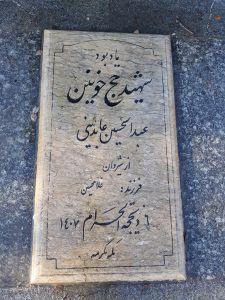 یادبود
شهید حج خونین
عبدالحسین عابدینی
ارشردان
فرزند: غلامحسین
۶ ذیحجة الحرام ۱۴۰۷
مکه مکرمه